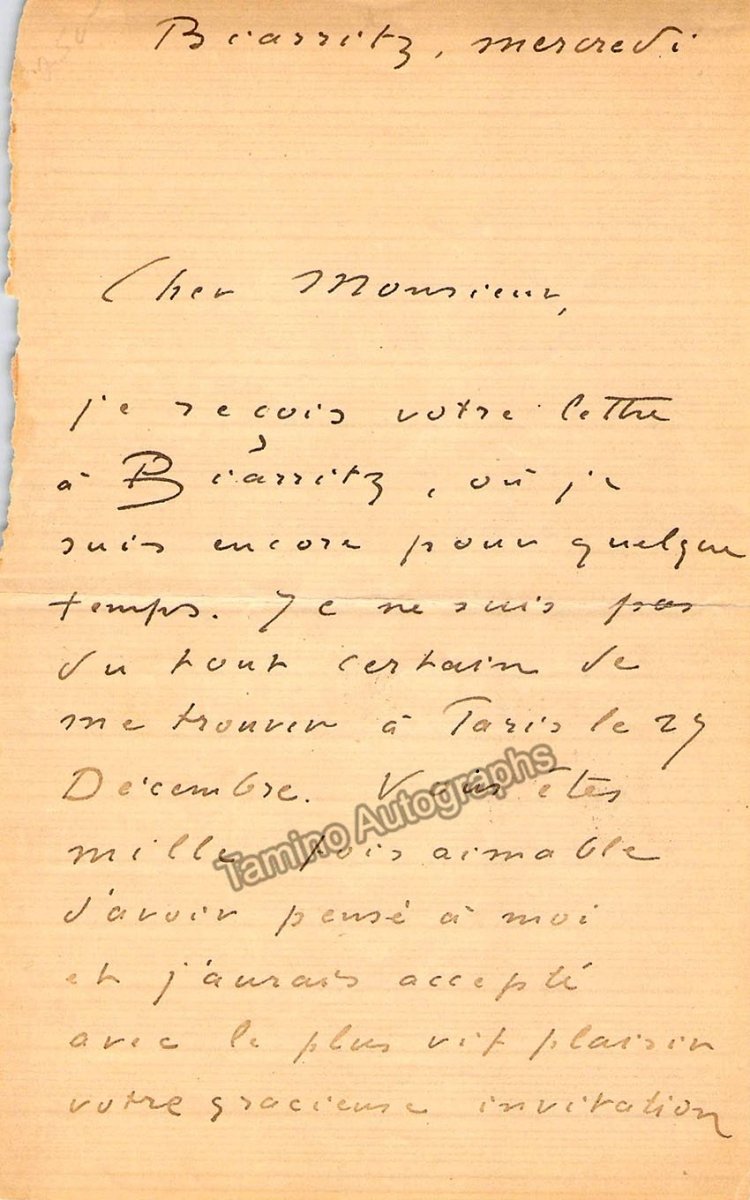 Biarritz, mercredi
Cher Monsieur,
je reçois votre lettre
à Biarritz, où je
suis encore pour quelque
temps. Je ne suis pas
du tout certain de
me trouver à Paris le 29
Décembre. Vous êtes
mille fois aimable
d'avoir pensé à moi
et j'aurais accepté
avec le plus vif plaisir
votre gracieuse invitation
Tamino Autographs